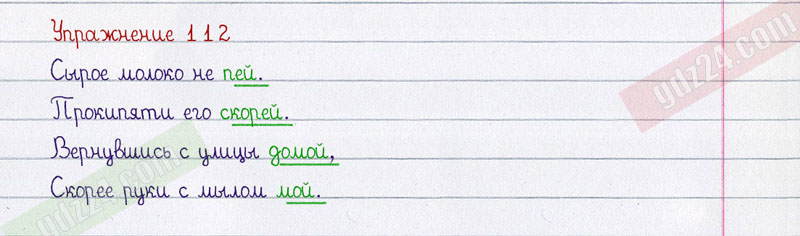 Упражнение 112
Сырое молоко не пей.
Прокипяти его скорей.
Вернувшись с улицы домой,
Скорее руки с мылом мой.
gdz24.com
gdz24.com